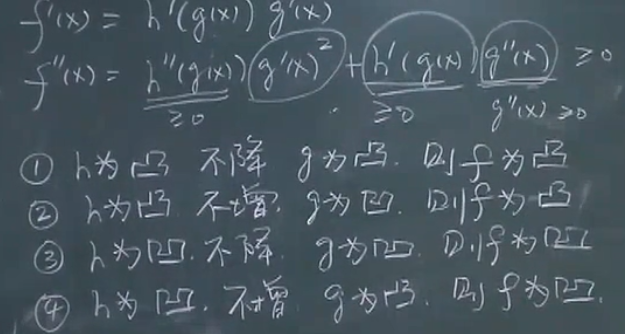 f'(x) = h'(g(x)) g'(x)
f''(x) = h''(g(x)) g'(x)² + h'(g(x)) g''(x) ≥0
≥0 ≥0 g''(x) ≥0
① h为凸 不降 g为凸. 则f为凸
② h为凸 不增. g为凹. 则f为凸
③ h为凹. 不降. g为凹. 则f为凹
④ h为凹. 不增 g为凸. 则f为凹.